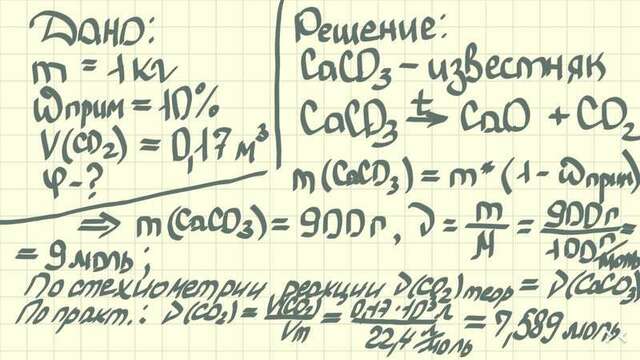 Дано:
m = 1 кг
Wприм = 10%
V(CO₂) = 0,17 м³
φ - ?
Решение:
CaCO₃ - известняк
CaCO₃ t→ CaO + CO₂
m(CaCO₃) = m * (1 - Wприм)
⇒ m(CaCO₃) = 900 г, ν = m/M = 900 г/100 г/моль =
= 9 моль;
По стехиометрии реакции ν(CO₂)теор = ν(CaCO₃)
По практ.: ν(CO₂) = V(CO₂)/Vm = 0,17·10³ л/22,4 л/моль = 7,589 моль